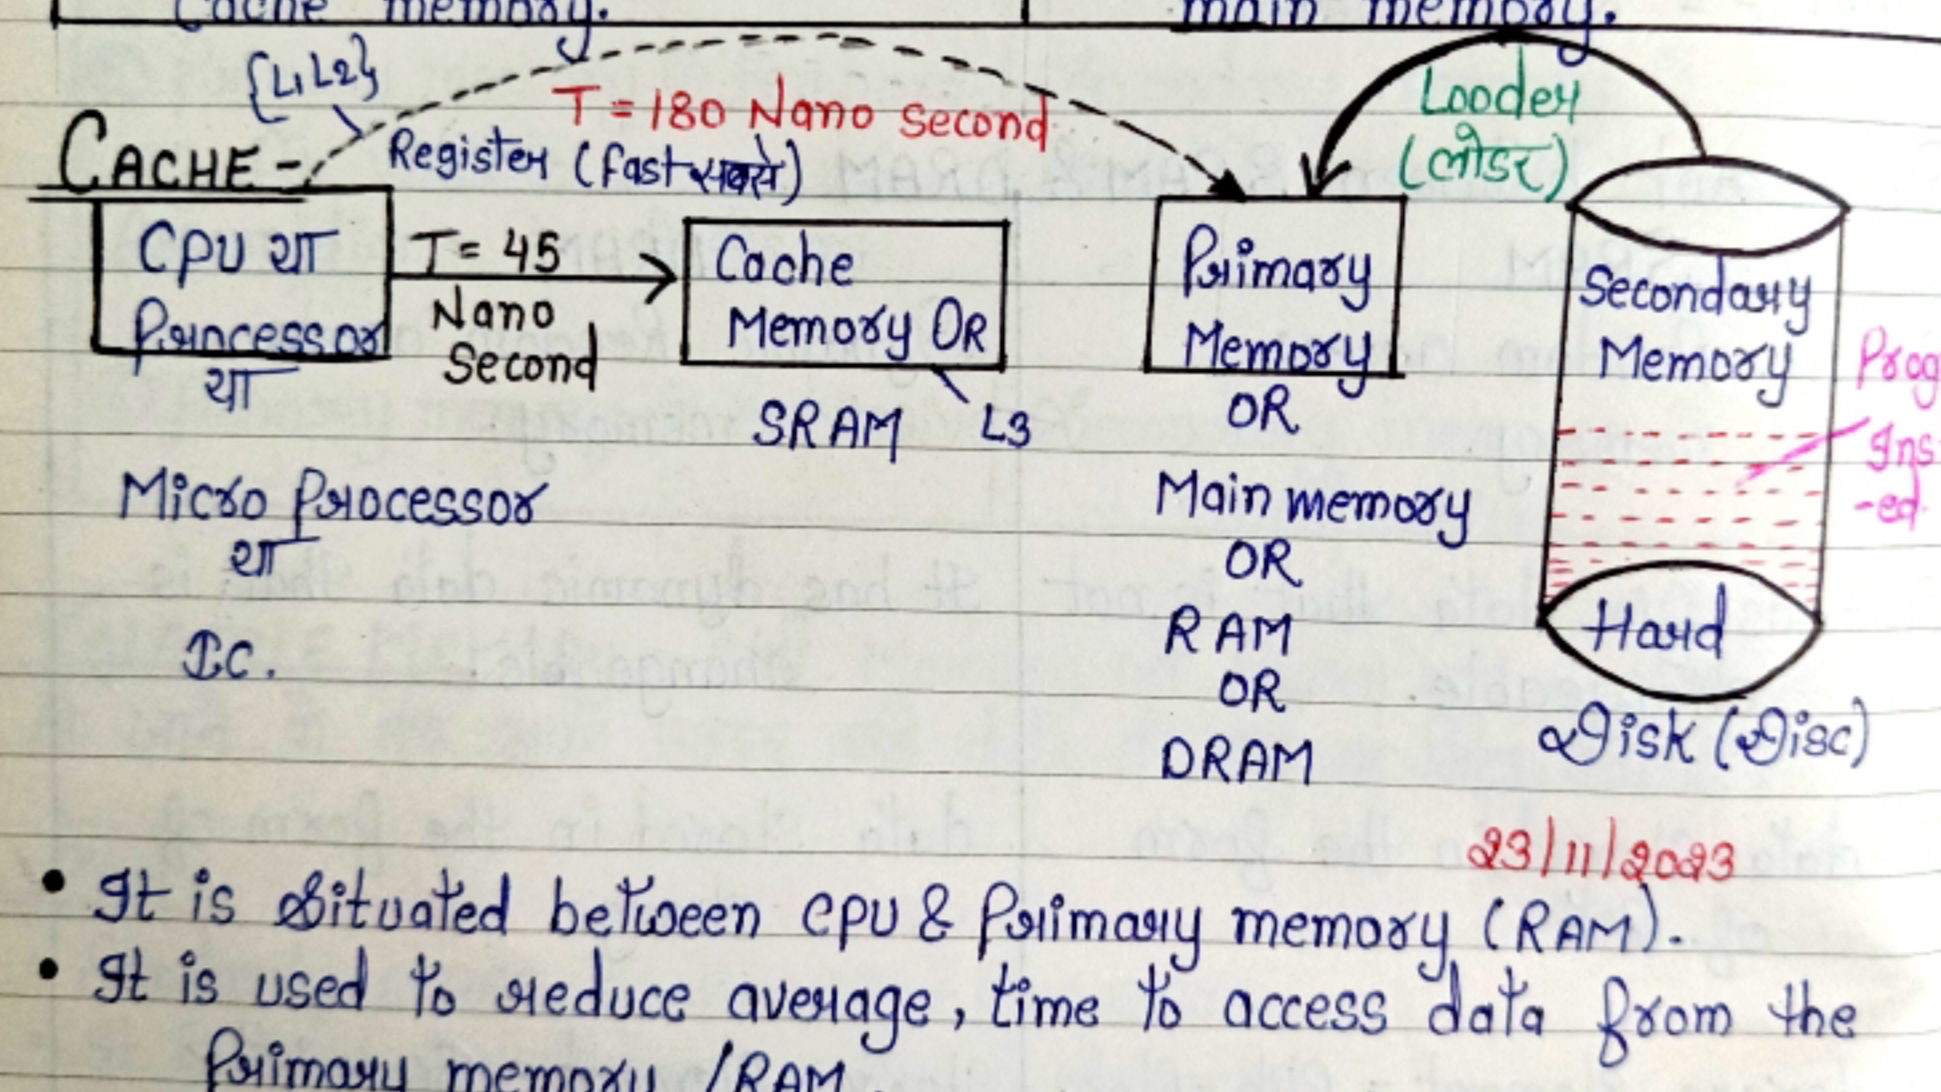 Cache memory.
main memory.
{L1 L2}
T = 180 Nano second
Looder
(लोडर)
CACHE -
Register (fast सबसे)
CPU या
Processor
या
Micro processor
या
IC.
T = 45
Nano
Second
Cache
Memory OR
SRAM
L3
Primary
Memory
OR
Main memory
OR
RAM
OR
DRAM
Secondary
Memory
Prog
Ins
-ed
Hard
Disk (Disc)
23/11/2023
• It is situated between CPU & Primary memory (RAM).
• It is used to reduce average, time to access data from the
Primary memory /RAM.